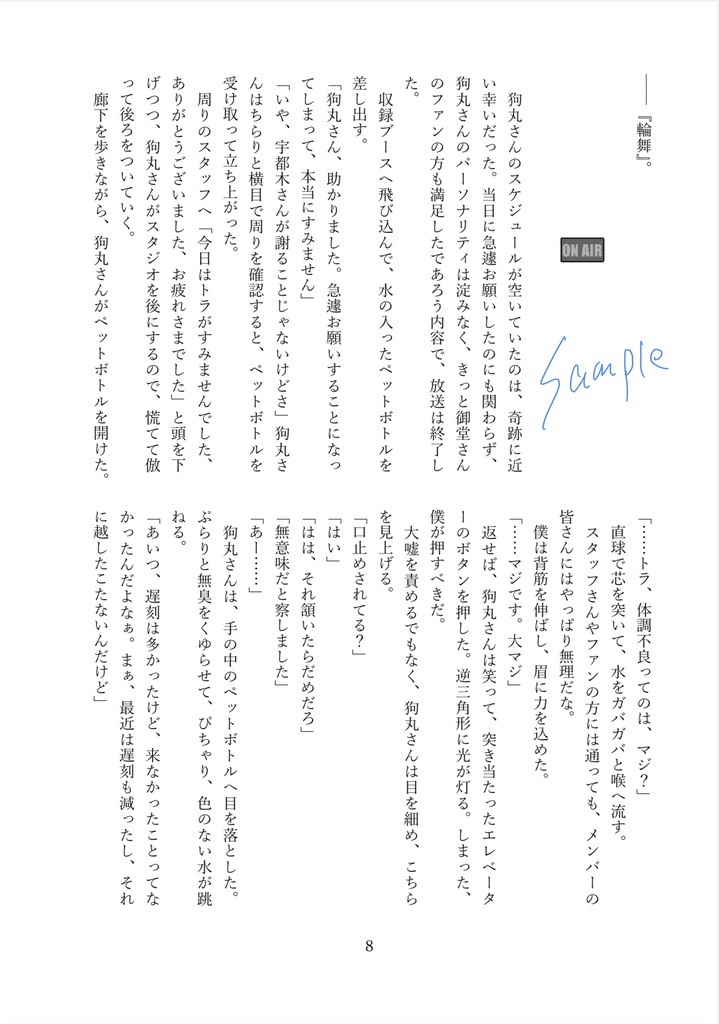 ――『輪舞』。
ON AIR
Sample
狗丸さんのスケジュールが空いていたのは、奇跡に近
い幸いだった。当日に急遽お願いしたのにも関わらず、
狗丸さんのパーソナリティは淀みなく、きっと御堂さん
のファンの方も満足したであろう内容で、放送は終了し
た。
収録ブースへ飛び込んで、水の入ったペットボトルを
差し出す。
「狗丸さん、助かりました。急遽お願いすることになっ
てしまって、本当にすみません」
「いや、宇都木さんが謝ることじゃないけどさ」狗丸さ
んはちらりと横目で周りを確認すると、ペットボトルを
受け取って立ち上がった。
周りのスタッフへ「今日はトラがすみませんでした、
ありがとうございました、お疲れさまでした」と頭を下
げつつ、狗丸さんがスタジオを後にするので、慌てて倣
って後ろをついていく。
廊下を歩きながら、狗丸さんがペットボトルを開けた。
「……トラ、体調不良ってのは、マジ？」
直球で芯を突いて、水をガバガバと喉へ流す。
スタッフさんやファンの方には通っても、メンバーの
皆さんにはやっぱり無理だな。
僕は背筋を伸ばし、眉に力を込めた。
「……マジです。大マジ」
返せば、狗丸さんは笑って、突き当たったエレベータ
ーのボタンを押した。逆三角形に光が灯る。しまった、
僕が押すべきだ。
大嘘を責めるでもなく、狗丸さんは目を細め、こちら
を見上げる。
「口止めされてる？」
「はい」
「はは、それ頷いたらだめだろ」
「無意味だと察しました」
「あー……」
狗丸さんは、手の中のペットボトルへ目を落とした。
ぷらりと無臭をくゆらせて、ぴちゃり、色のない水が跳
ねる。
「あいつ、遅刻は多かったけど、来なかったことってな
かったんだよなぁ。まぁ、最近は遅刻も減ったし、それ
に越したこたないんだけど」
8